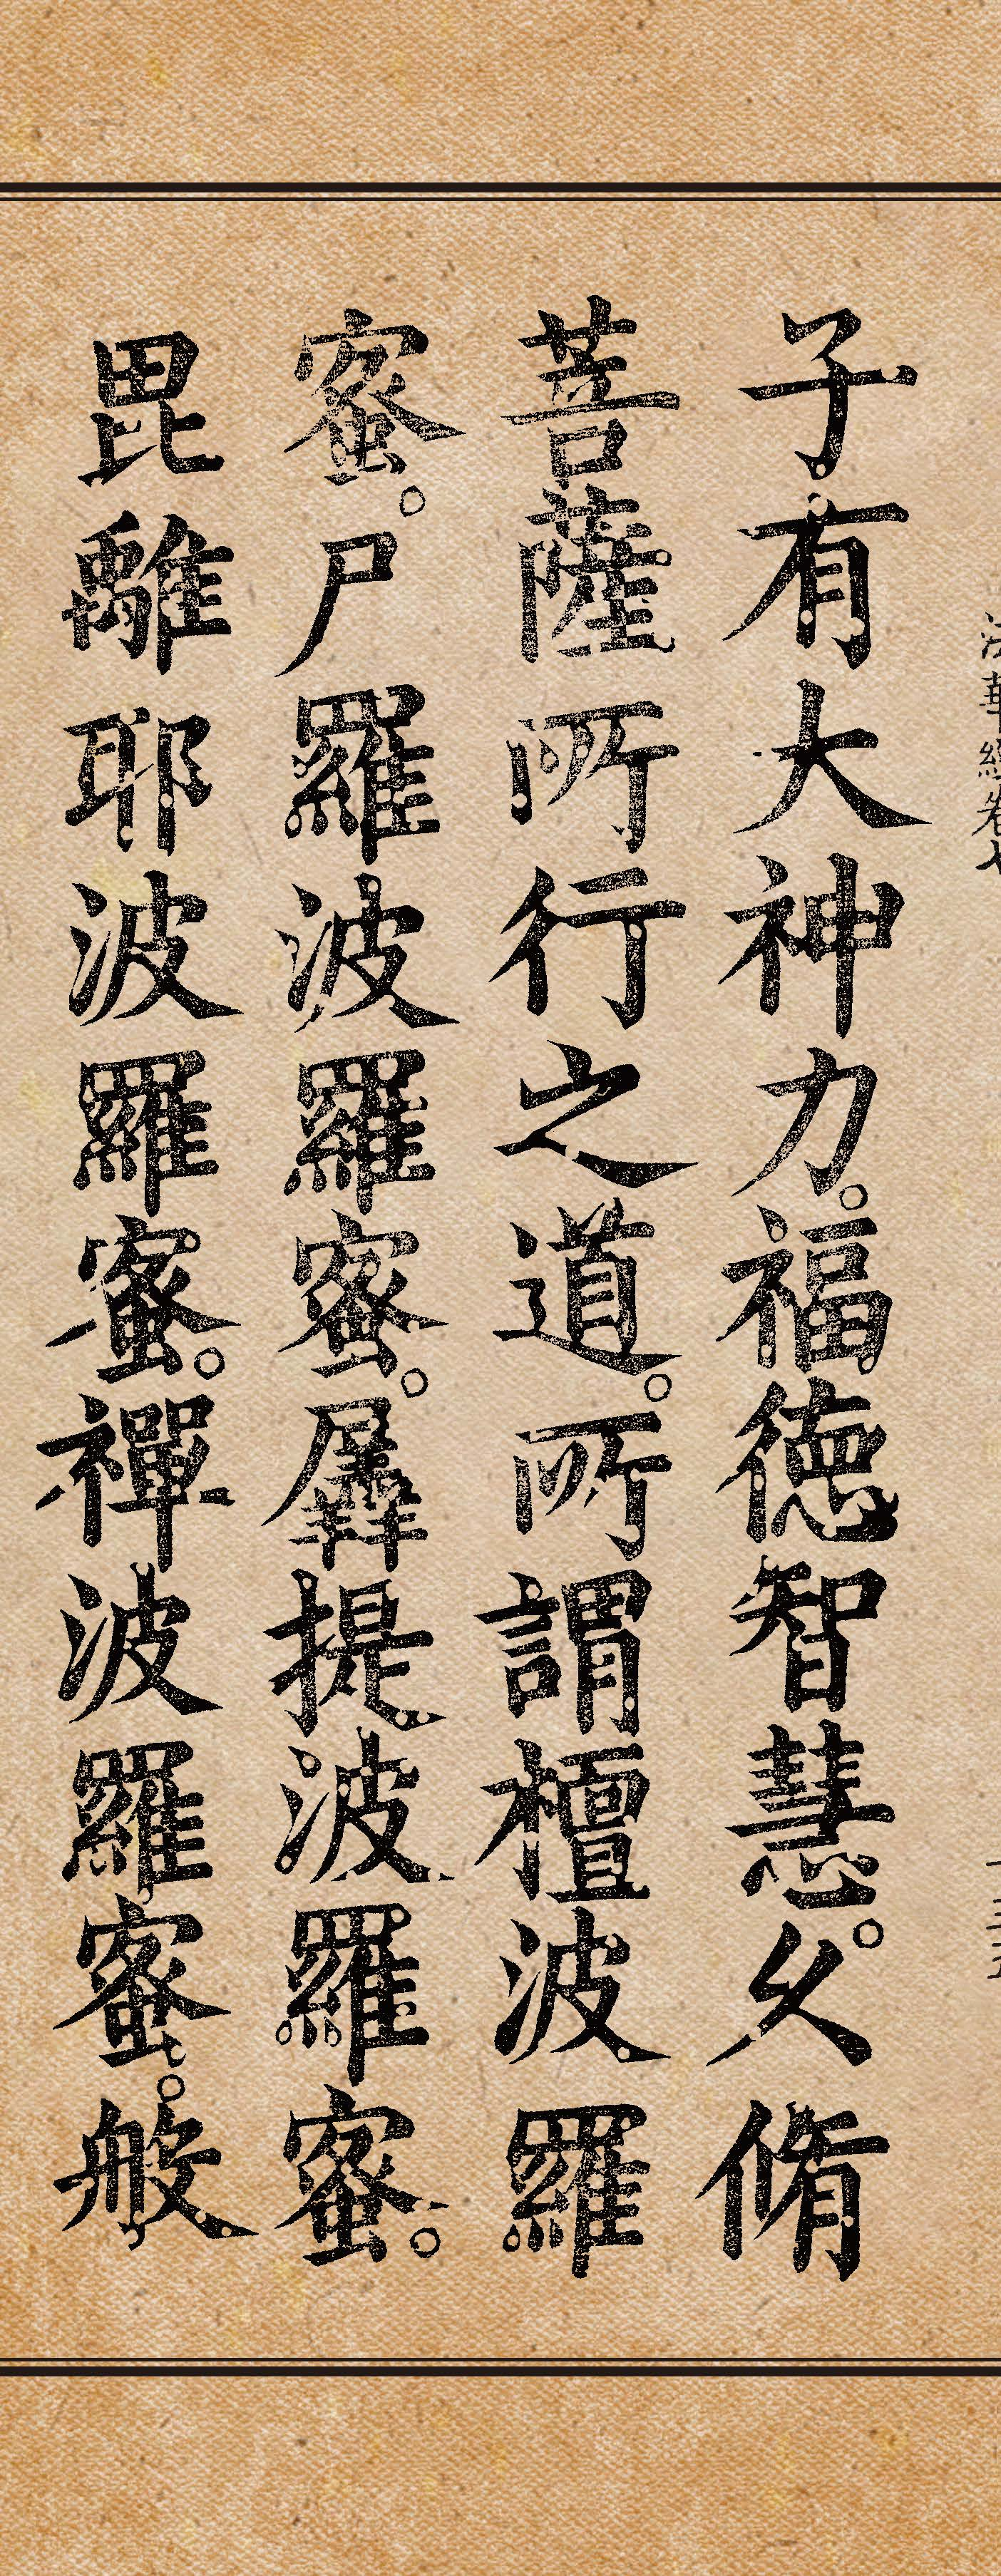 子有大神力。福德智慧。久脩
菩薩所行之道。所謂檀波羅
蜜。尸羅波羅蜜。羼提波羅蜜。
毘離耶波羅蜜。禪波羅蜜。般